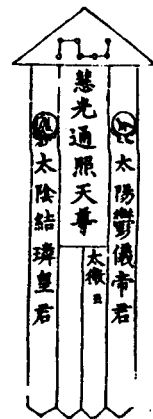 太陽鬱儀帝君
慧光通照天尊
太微
太陰結璘皇君